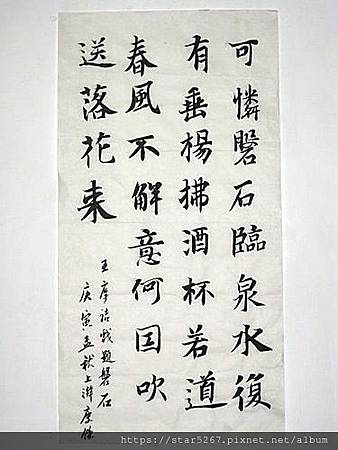 可憐磐石臨泉水復
有垂楊拂酒杯若道
春風不解意何因吹
送落花来
王摩诘戏题磐石
庚寅孟秋上澣
https://star5267.pixnet.net/album